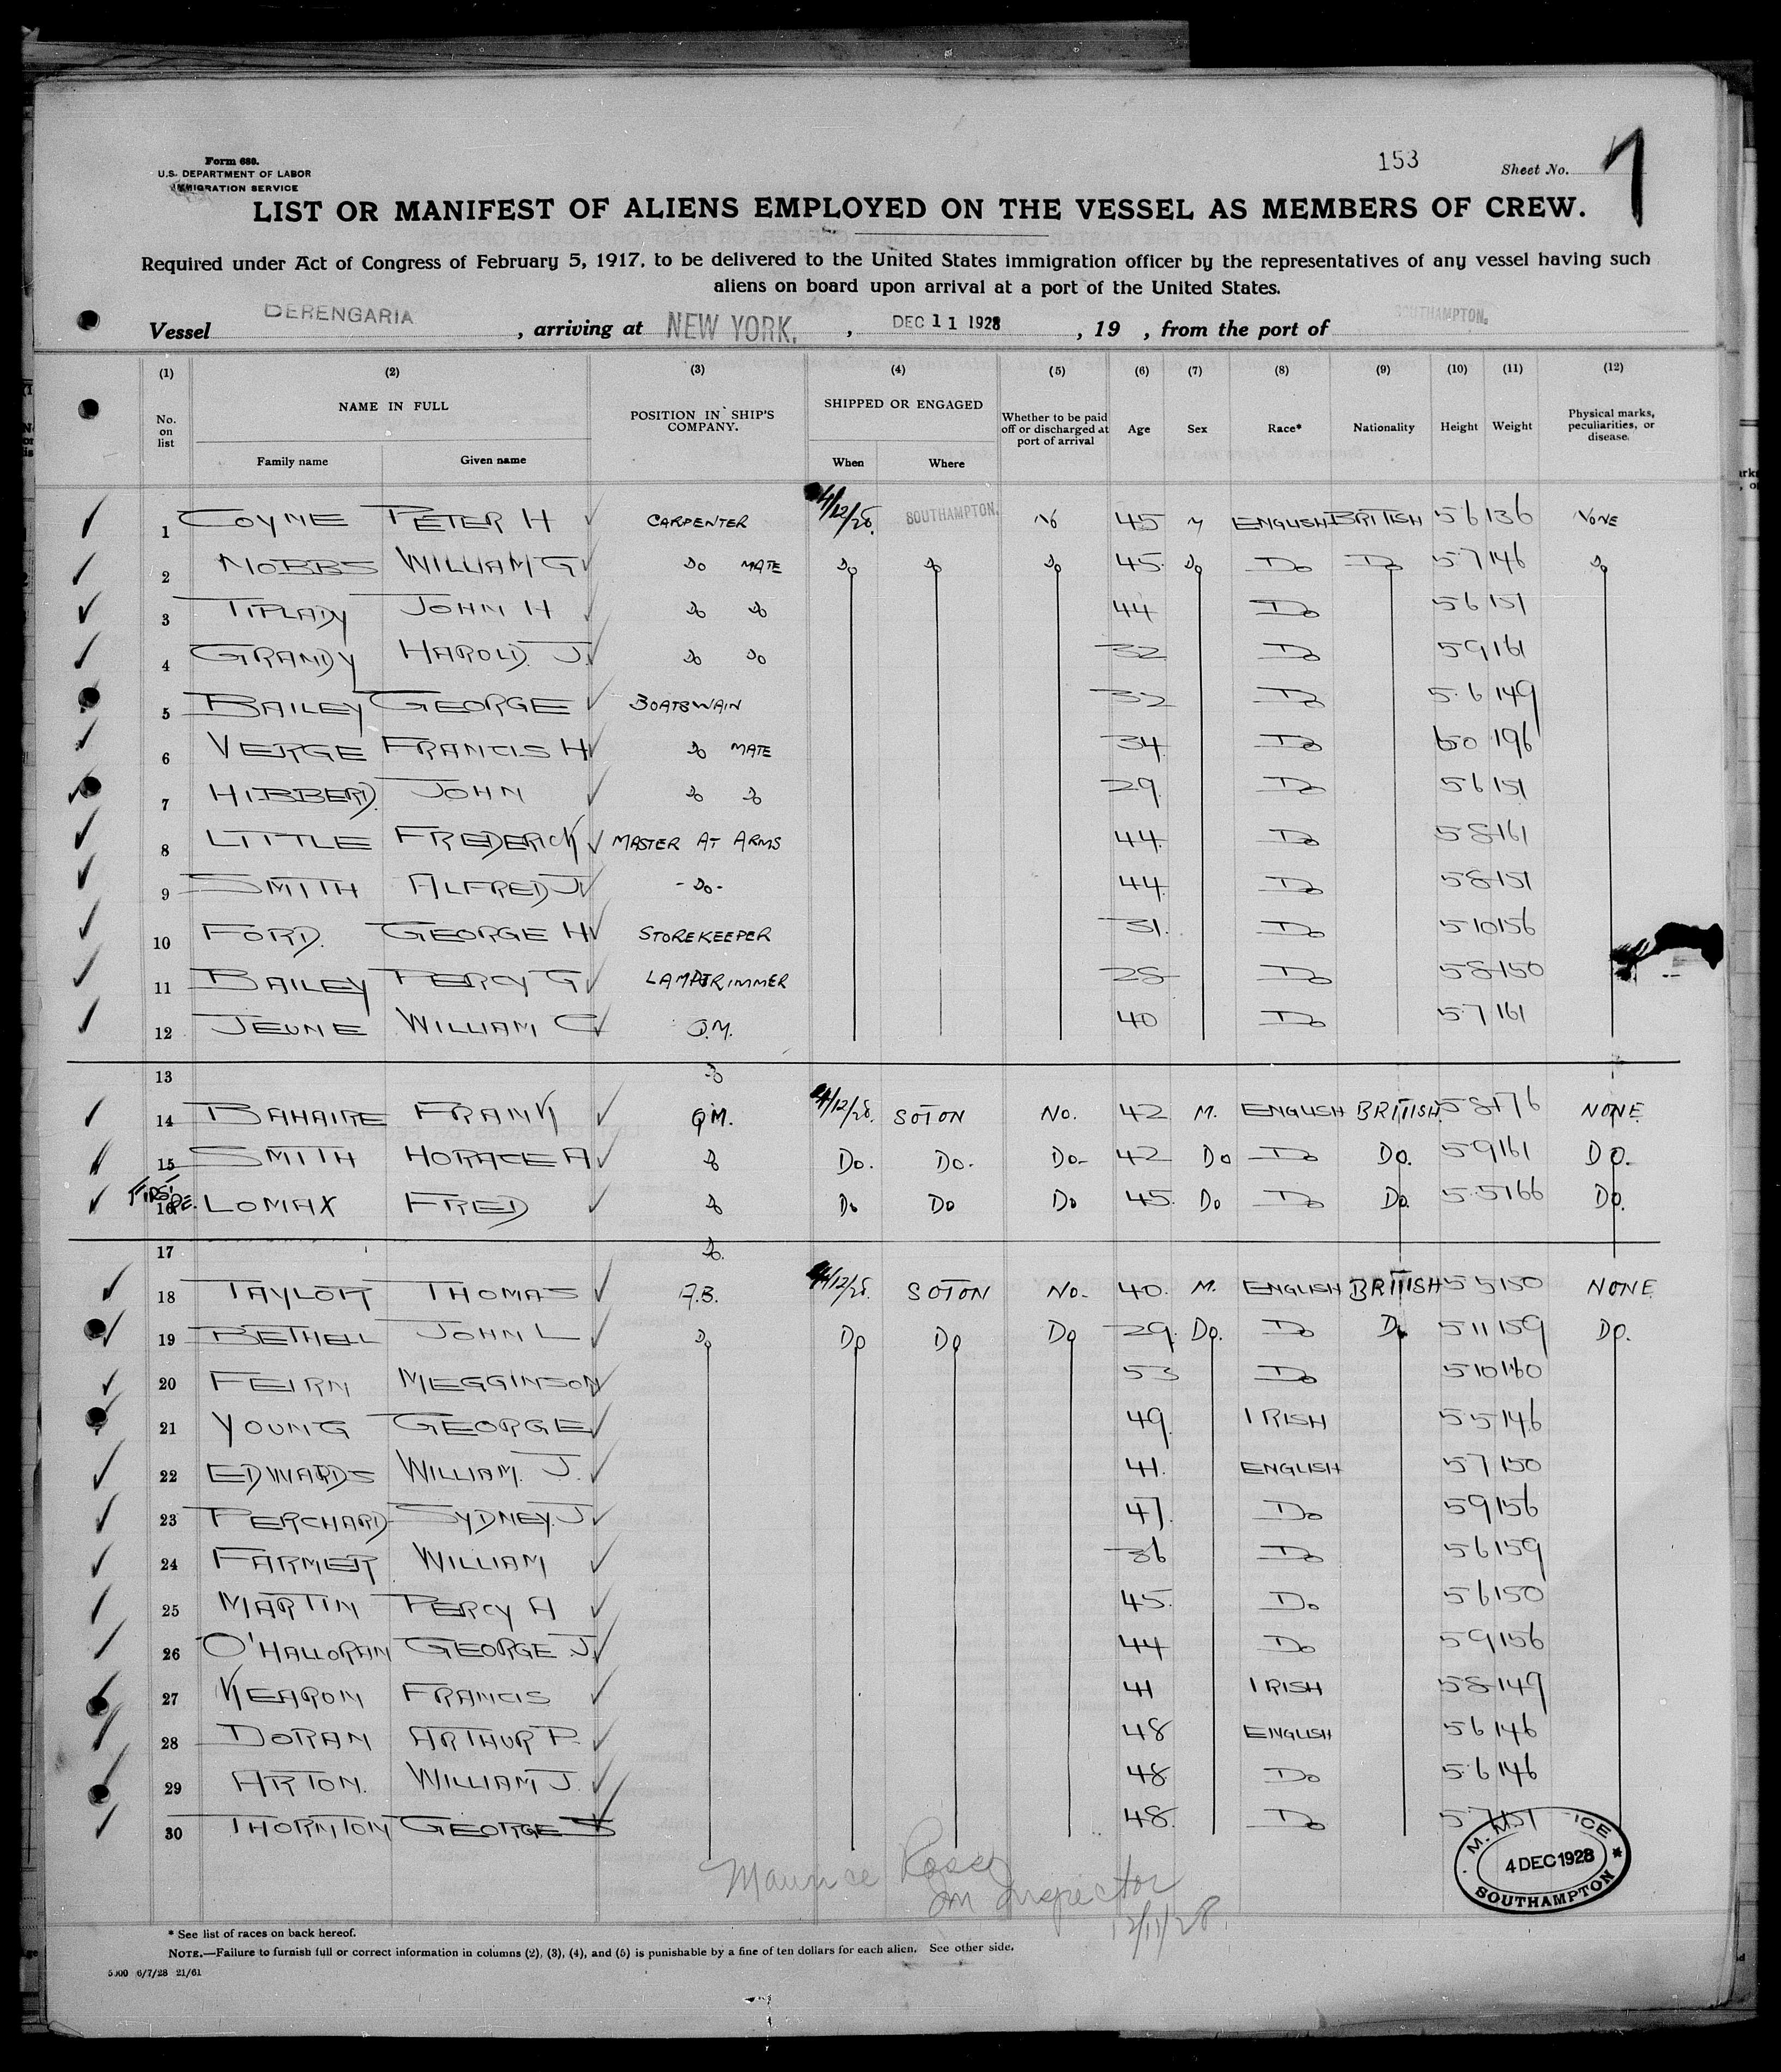 Form 680.
U.S. DEPARTMENT OF LABOR
IMMIGRATION SERVICE
153 Sheet No. 1
LIST OR MANIFEST OF ALIENS EMPLOYED ON THE VESSEL AS MEMBERS OF CREW.
Required under Act of Congress of February 5, 1917, to be delivered to the United States immigration officer by the representatives of any vessel having such
aliens on board upon arrival at a port of the United States.
Vessel BERENGARIA, arriving at NEW YORK., DEC 11 1928, 19 , from the port of SOUTHAMPTON.
(1) (2) (3) (4) (5) (6) (7) (8) (9) (10) (11) (12)
No. on list NAME IN FULL POSITION IN SHIP'S COMPANY. SHIPPED OR ENGAGED Whether to be paid off or discharged at port of arrival Age Sex Race* Nationality Height Weight Physical marks, peculiarities, or disease.
Family name Given name When Where
1 COYNE PETER H CARPENTER 4/12/28. SOUTHAMPTON. No 45 M ENGLISH BRITISH 5 6 136 NONE
2 NOBBS WILLIAM G Do MATE Do Do Do 45. Do Do Do 5 7 146 Do
3 TIPLADY JOHN H Do Do 44 Do 5 6 151
4 GRANDY HAROLD. J. Do Do 32 Do 5 9 161
5 BAILEY GEORGE BOATSWAIN 32 Do 5. 6 149
6 VERGE FRANCIS H Do MATE 34 Do 6 0 196
7 HIBBERD. JOHN Do Do 29 Do 5 6 151
8 LITTLE FREDERICK MASTER AT ARMS 44. Do 5 8 161
9 SMITH ALFRED J - Do - 44. Do 5 8 151
10 FORD. GEORGE H STOREKEEPER 31. Do 5 10 156
11 BAILEY PERCY G LAMPTRIMMER 28 Do 5 8 150
12 JEUNE WILLIAM C Q.M. 40 Do 5 7 161
13 Do
14 BAHAIRE FRANK QM. 4/12/28. SOTON No. 42 M. ENGLISH BRITISH. 5 8 176 NONE.
15 SMITH HORACE A Do Do. Do. Do. 42 Do Do Do. 5 9 161 Do.
16 LOMAX FRED Do Do Do Do 45. Do Do Do. 5 5 166 Do.
17 Do.
18 TAYLOR THOMAS A.B. 4/12/28. SOTON No. 40. M. ENGLISH BRITISH 5 5 150 NONE.
19 BETHELL JOHN L Do Do Do Do 29. Do. Do Do 5 11 159 Do.
20 FEIRN MEGGINSON 53 Do 5 10 160
21 YOUNG GEORGE 49. IRISH 5 5 146
22 EDWARDS WILLIAM. J. 41. ENGLISH 5 7 150
23 PERCHARD SYDNEY. J 47. Do 5 9 156
24 FARMER WILLIAM 36 Do 5 6 159
25 MARTIN PERCY A 45. Do 5 6 150
26 O'HALLORAN GEORGE J. 44 Do 5 9 156
27 KEARON FRANCIS 41 IRISH 5 8 149
28 DORAN ARTHUR P. 48 ENGLISH 5 6 146
29 ARTON. WILLIAM J. 48 Do 5. 6 146
30 THORNTON GEORGE S 48. Do 5 7 151
4 DEC 1928
SOUTHAMPTON
Maurice
Im Inspector
12/11/28.
* See list of races on back hereof.
NOTE.—Failure to furnish full or correct information in columns (2), (3), (4), and (5) is punishable by a fine of ten dollars for each alien. See other side.
5000 6/7/28 21/61